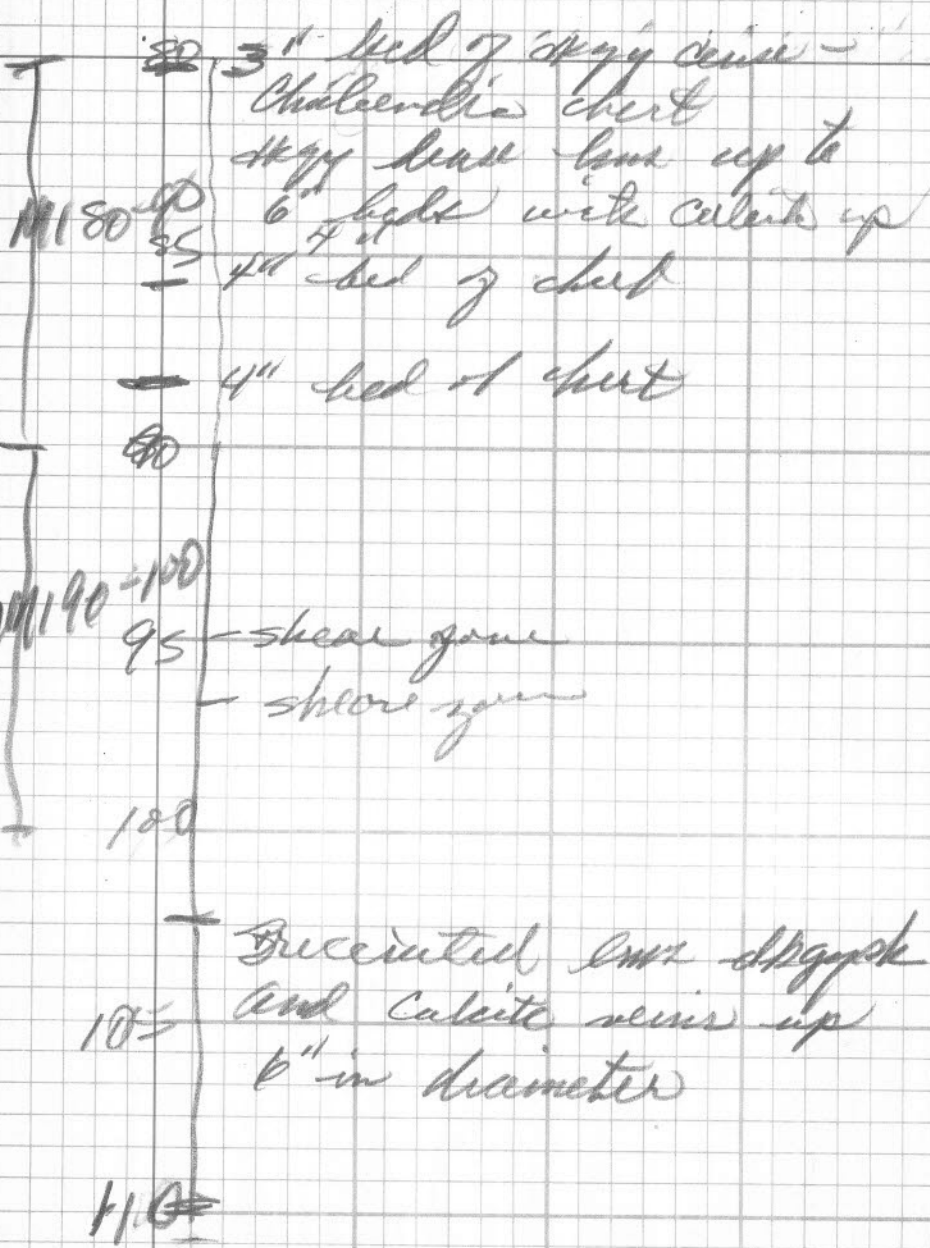 80 3" bed of dkgy dense -
chert
dkgy dense lmz up to
M180-90 6" beds with calcite up
85 4"
4" bed of chert
4" bed of chert
90
M190-100
95 - shear zone
- shear zone
100
Brecciated lmz
105 and calcite veins up
6" in diameter
110